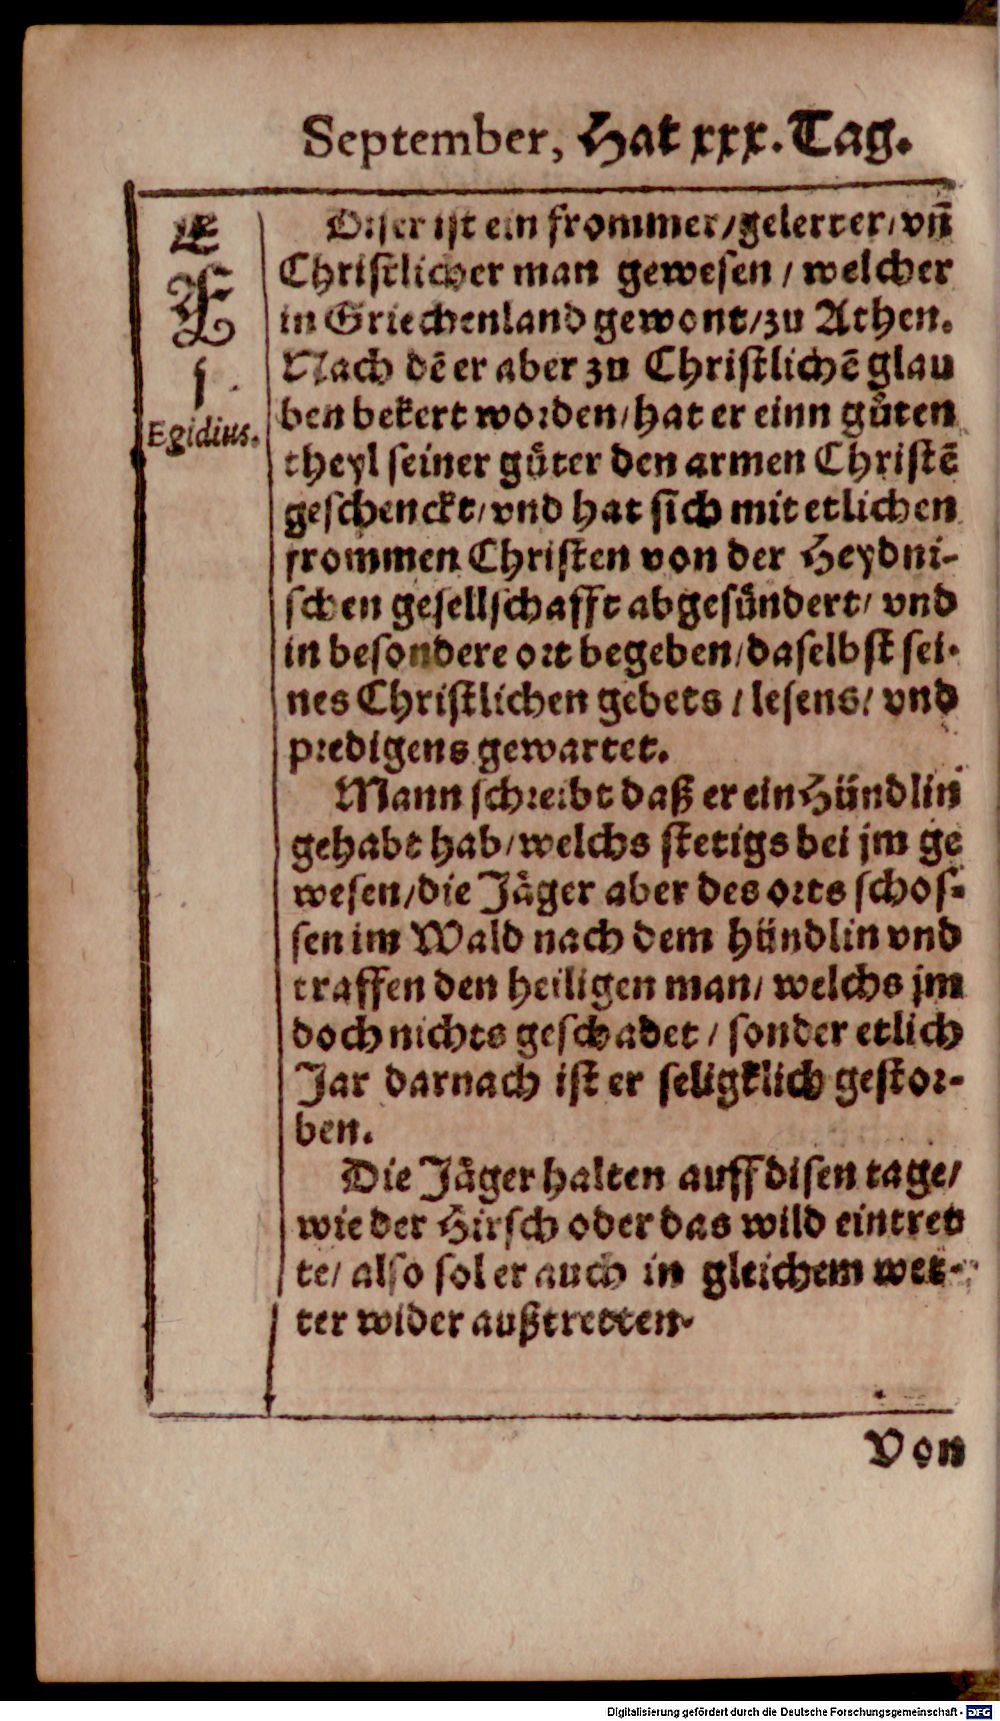 September, Hat xxx. Tag.
E
F
1
Egidius.
Diser ist ein frommer/gelerter/vn̄
Christlicher man gewesen / welcher
in Griechenland gewont/zu Athen.
Nach dē er aber zu Christlichē glau
ben bekert worden/hat er einn gůten
theyl seiner gůter den armen Christē
geschenckt/vnd hat sich mit etlichen
frommen Christen von der Heydni-
schen gesellschafft abgesündert/ vnd
in besondere ort begeben/daselbst sei-
nes Christlichen gebets / lesens/ vnd
predigens gewartet.
Mann schreibt daß er ein Hündlin
gehabt hab/welchs stetigs bei jm ge
wesen/die Jäger aber des orts schos-
sen im Wald nach dem hündlin vnd
traffen den heiligen man/ welchs jm
doch nichts geschadet / sonder etlich
Jar darnach ist er seligklich gestor-
ben.
Die Jäger halten auff disen tage/
wie der Hirsch oder das wild eintret
te/ also sol er auch in gleichem wet-
ter wider außtretten.
Von
Digitalisierung gefördert durch die Deutsche Forschungsgemeinschaft - DFG